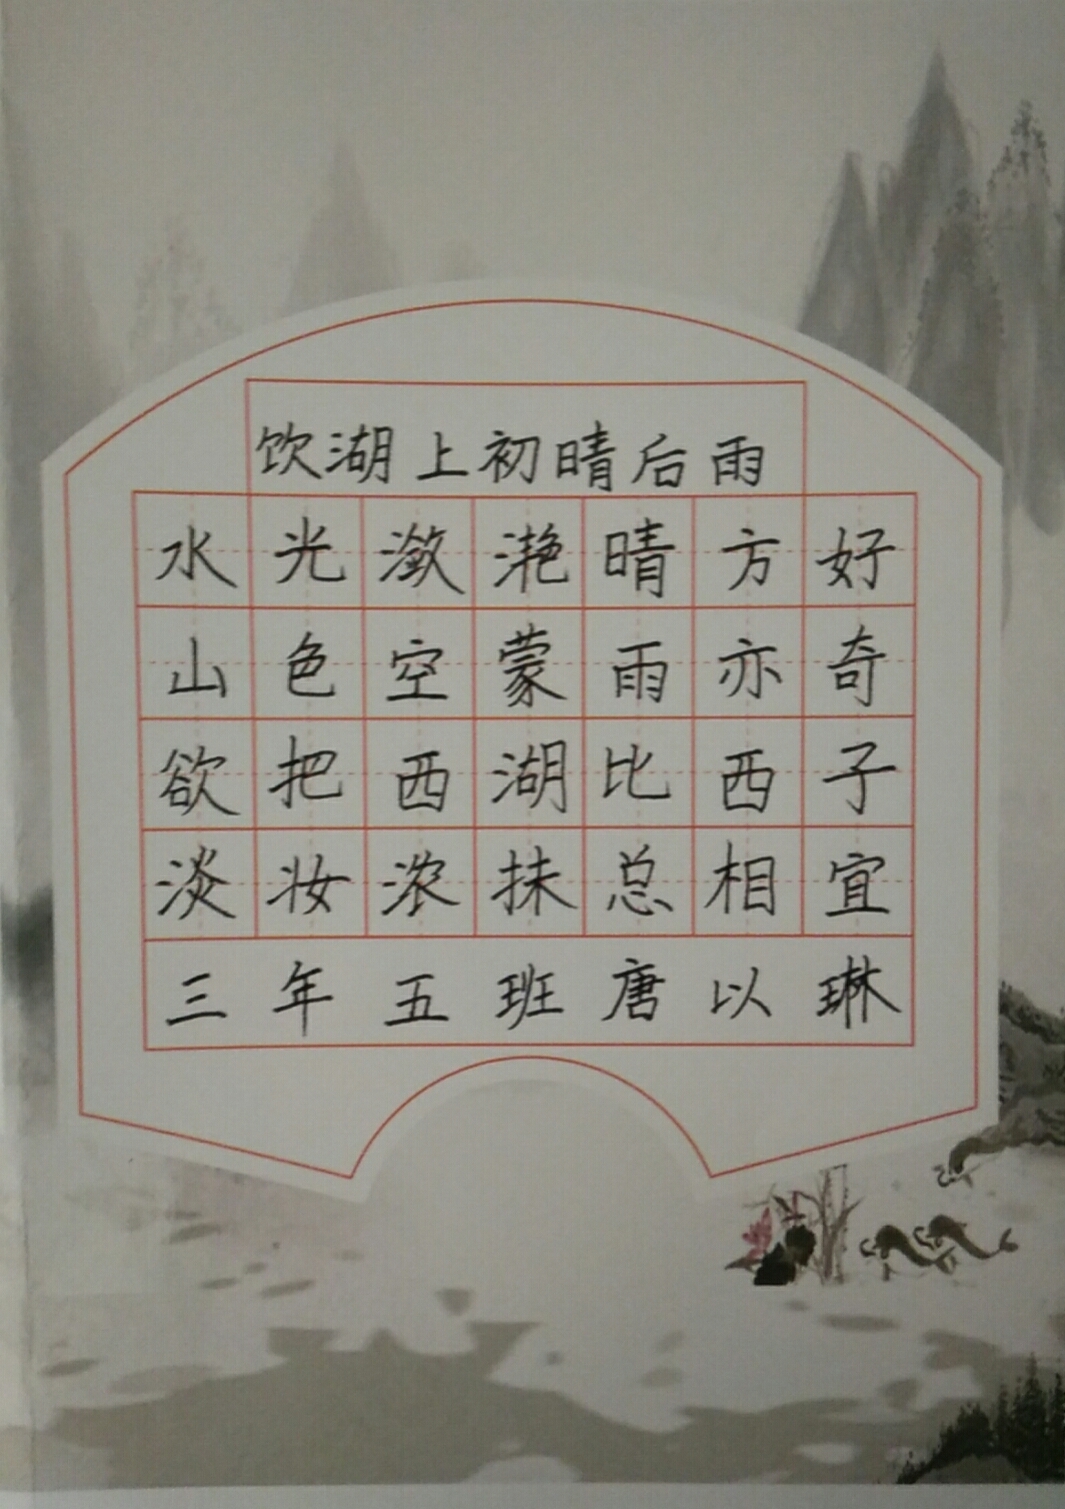 饮湖上初晴后雨
水光潋滟晴方好
山色空蒙雨亦奇
欲把西湖比西子
淡妆浓抹总相宜
三年五班唐以琳